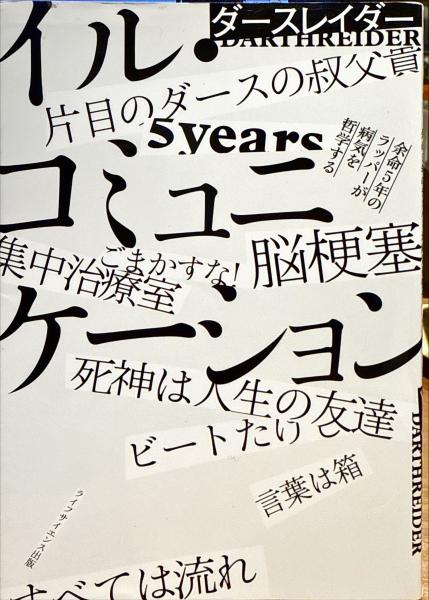 ダースレイダー
DARTHREIDER
イル・
片目のダースの叔父貴
5years
余命5年の
ラッパーが
病気を
哲学する
コミュニ
ごまかすな!
脳梗塞
集中治療室
ケーション
死神は人生の友達
ビートたけ
言葉は箱
DARTHREIDER
ライフサイエンス出版
すべては流れ